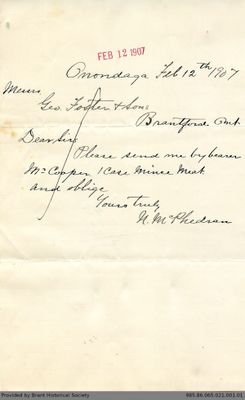 FEB 12 1907
Onondaga Feb 12th 1907
Messrs
Geo. Foster & Sons
Brantford Ont
Dear Sir
Please send me by bearer
Mr Cooper 1 Case Mince Meat
and oblige
Yours truly
N. McPhedran
Provided by Brant Historical Society
985.86.065.021.001.01